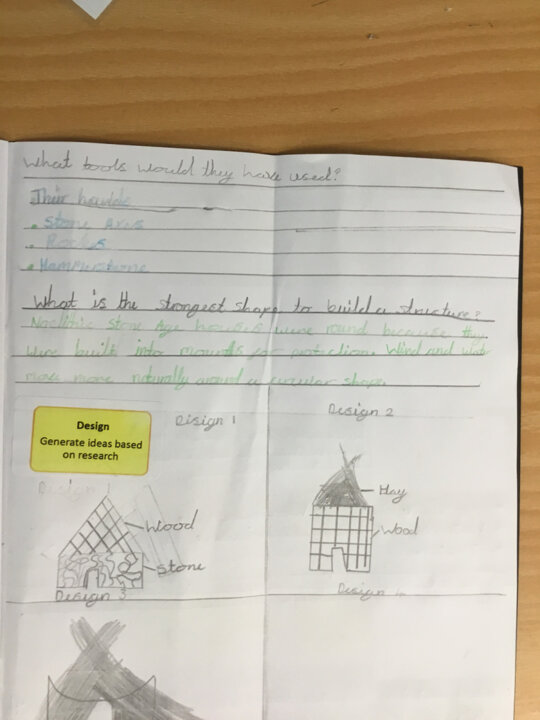 What tools would they have used?
Thir hands
• Stone Axes
• Rocks
• Hammerstone
What is the strongest shape to build a structure?
Neolithic Stone Age houses were round because they
were built into mounds for protection. Wind and water
moves more naturally around a circular shape.
Design
Generate ideas based
on research
Disign 1
Design 2
Design 1
Hay
Wood
Wood
Stone
Design 3
Design 4